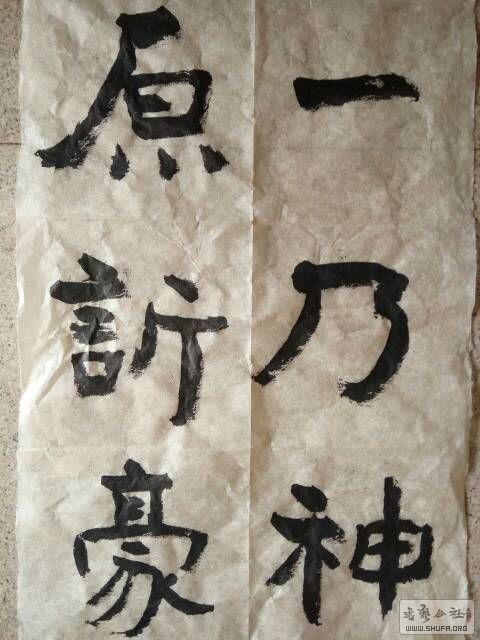 一乃神
原訢豪
書藝公社
WWW.SHUFA.ORG